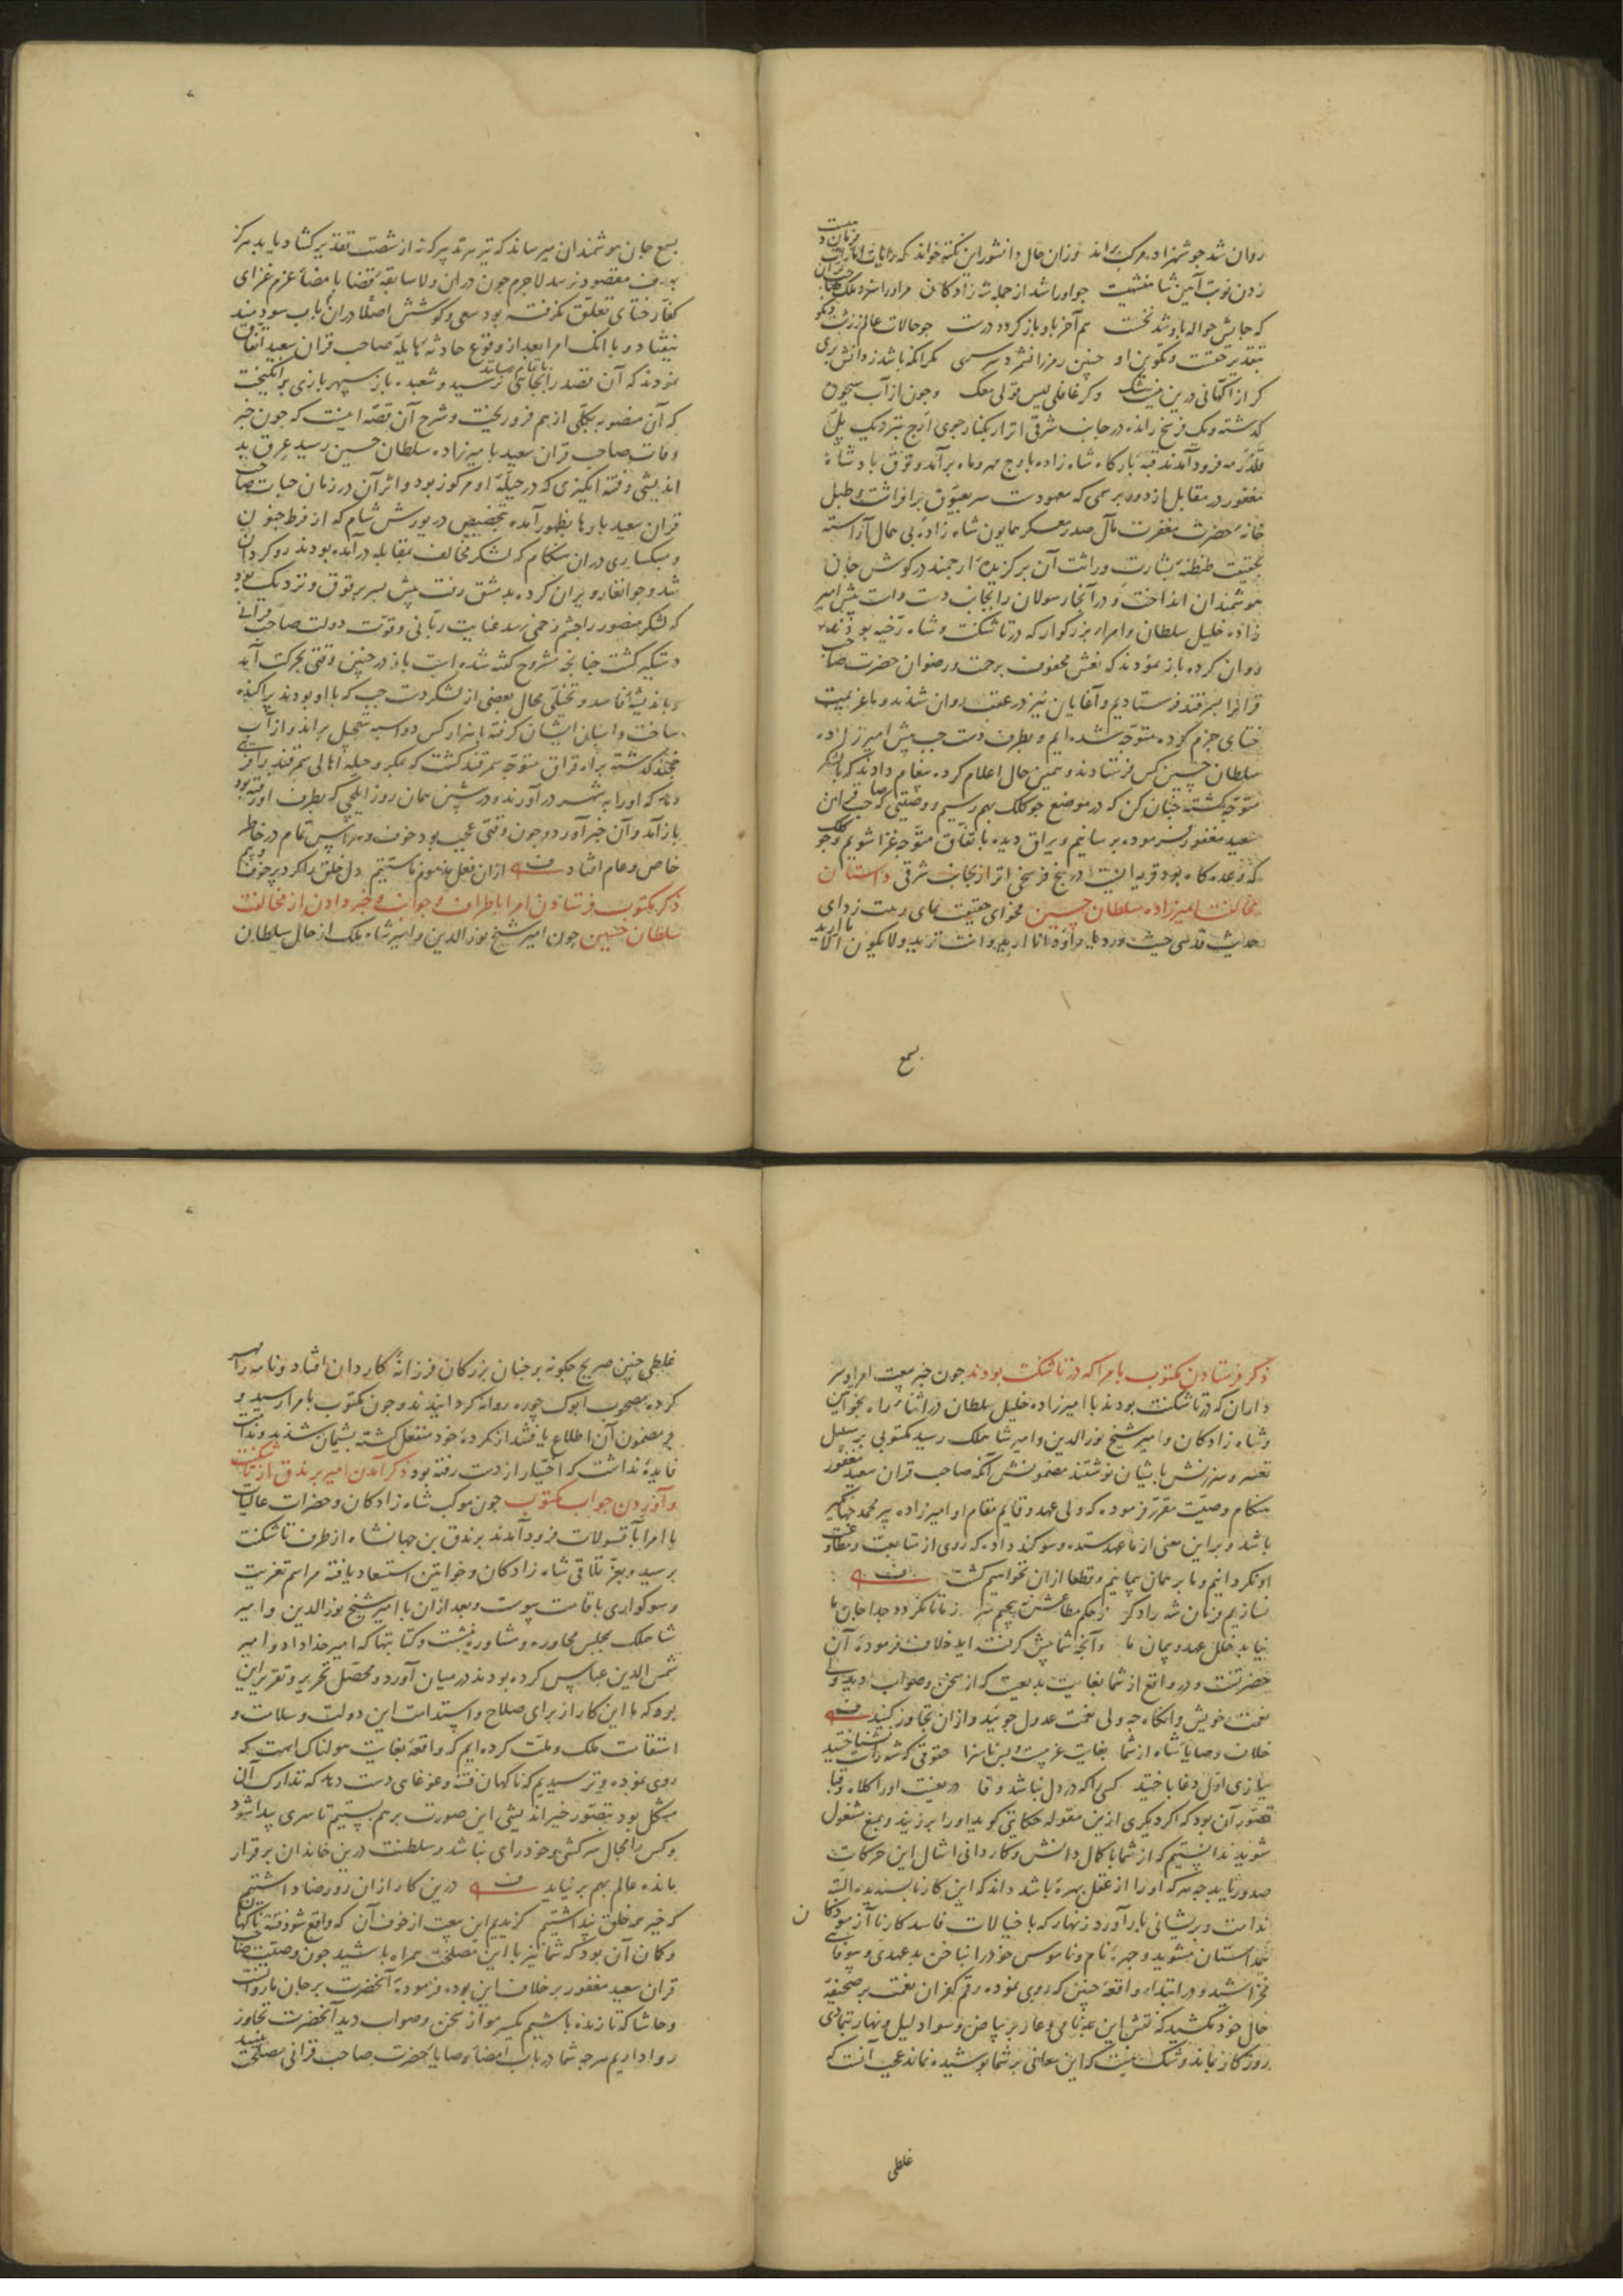 روان شد جو شهزاده مرکب براند وزان حال دانشور این نکته خواند که رایات
زدن نوبت آیین شاهنشهیت جو او را شد از جمله شه زادکان مر او را سزد ملک
که جایش حواله باو شد نخست هم آخر باو باز کردد درست جو حالات عالم ز زشت و نکو
بتقدیر حقست و تکوین او چنین رمزرا نشمرد سرسری مکر انکه باشد ز دانش بری
کر از اکهانی درین نیست شک وکر غافلی لیس قولی معک وجون از آب سیحون
کذشته و یک فرسخ رانده در جانب شرقی اترار بکنار جوی ارج نزدیک پل
فرود آمدند قبه بارکاه شاه زاده باوج مهر و ماه برآمد و توق بادشاه
مغفور در مقابل از دور برسمی که معهودست سر بعیوق برافراشت و طبل
خانهٔ حضرت مغفرت مآل صدر معسکر همایون شاه زادهٔ بی همال آراسته
بحقیقت طنطنهٔ بشارت وراثت آن برکزیدهٔ ارجمند در کوش جان
هوشمندان انداخت و در آنجا رسولان را بجانب دست راست پیش امیر
زاده خلیل سلطان و امراء بزرکوار که در تاشکنت و شاه رخیه بودند
روان کرده باز نمودند که نعش محفوف برحمت و رضوان حضرت صاحب
قرانرا بسمرقند فرستادیم و آغایان نیز در عقب روان شدند و ما عزیمت
ختای جزم کرده متوجه شده ایم و بطرف دست جب پیش امیر زاده
سلطان حسین کس فرستادند و همین حال اعلام کرده پیغام دادند که با لشکر
متوجه کشته جنان کن که در موضع جوکلک بهم رسیم و وصیتی که صاحب قران
سعید مغفور فرموده برسانیم و یراق دیده باتفاق متوجه غزا شویم و جوکلک
که وعده کاه بود قریه ایست در پنج فرسخی اترار از جانب شرقی داستان
مخالفت امیر زاده سلطان حسین فحوای حقیقت نمای ریبت زدای
حدیث قدسی حیث ورد یا داود انا ارید و انت ترید و لا یکون الا ما ارید
بسمع
بسمع جان هوشمندان میرساند که تیر هر تدبیر که نه از شصت تقدیر کشاد یابد هرکز
بهدف مقصود نرسد لاجرم جون دران ولا سابقهٔ قضا بامضاء عزم غزای
کفار ختای تعلق نکرفته بود سعی و کوشش اصلا دران باب سودمند
نیفتاد و با انک امرا بعد از وقوع حادثهٔ هایلهٔ صاحب قران سعید اتفاق
نمودند که آن قصد را بجائی رسانند نرسید و شعبده باز سپهر بازی برانکیخت
که آن منصوبه بکلی از هم فرو ریخت و شرح آن قصه اینست که جون خبر
وفات صاحب قران سعید بامیر زاده سلطان حسین رسید عرق بد
اندیشی و فتنه انکیزی که در جبلهٔ او مرکوز بود و اثر آن در زمان حیات صاحب
قران سعید بارها بظهور آمده بتخصیص در یورش شام که از فرط جنون
و سبکساری دران هنکام که لشکر مخالف بمقابله درآمده بودند روکردان
شد و جوانغار ویران کرده بدمشق رفت پیش بسر برقوق و نزدیک بود
که لشکر منصور را چشم زخمی رسد عنایت ربانی و قوت دولت صاحب قرانی
دستکیر کشت جنانجه مشروح کفته شده است باز در چنین وقتی بحرکت آمد
و باندیشهٔ فاسد و تخیلی محال بعضی از لشکر دست جب که با او بودند پراکنده
ساخت و اسبان ایشان کرفته با هزار کس دو اسبه بتعجیل براند و از آب
خجند کذشته براه قراق متوجه سمرقند کشت که بمکر و حیله اهالی سمرقند را فریب
دهد که او را به شهر درآورند و در شب همان روز ایلجی که بطرف او رفته بود
باز آمد و آن خبر آورد و جون وقتی عجب بود خوف و هراس تمام در خاطر
خاص و عام افتاد ازان فعل مذموم ناستقیم دل خلق را کرد پر خوف و بیم
ذکر مکتوب فرستادن امرا باطراف و جوانب و خبر دادن از مخالفت
سلطان حسین جون امیر شیخ نورالدین و امیر شاه ملک از حال سلطان
ذکر فرستادن مکتوب بامرا که در تاشکنت بودند جون خبر بیعت امرا و سر
داران که در تاشکنت بودند با امیر زاده خلیل سلطان در اثناء راه بخواتین
و شاه زادکان و امیر شیخ نورالدین و امیر شاه ملک رسید مکتوبی بر سبیل
تعییر و سرزنش بایشان نوشتند مضمونش آنکه صاحب قران سعید مغفور
هنکام وصیت مقرر فرموده که ولی عهد و قایم مقام او امیر زاده پیر محمد جهانکیر
باشد و بر این معنی از ما عهد ستده و سوکند داده که روی از متابعت و مطاوعت
او نکردانیم و ما بر همان پیمانیم و قطعا ازان نخواهیم کشت
نسازیم فرمان شه را دکر ز حکم مطاعش نپیچیم سر ز ما تا نکردد جدا جان ما
نیاید خلل عهد و پیمان ما و آنچه شما پیش کرفته اید خلاف فرمودهٔ آن
حضرتست و در واقع از شما بغایت بدیعست که از سخن و صواب دید ولی
نعمت خویش و انکاه جه ولی نعمت عدول جویید و ازان تجاوز کنید
خلاف وصایاء شاه از شما بغایت غریبست و بس ناسزا حقوقی که شه راست نشناختید
ببازی اول دغا باختید کسی را که در دل نباشد وفا دریغست او را کلاه و قبا
تصور آن بود که اکر دیکری ازین مقوله حکایتی کوید او را بر زنید و بمنع مشغول
شوید ندانستیم که از شما با کمال دانش و کاردانی امثال این حرکات
صدور یابد جه هرکه او را از عقل بهره باشد داند که این کار ناپسندیده البته
ندامت و پریشانی بار آورد زنهار که با خیالات فاسد کار ناآزمودکان
همداستان مشوید و چهرهٔ نام و ناموس خود را بناخن بدعهدی و بیوفائی
مخراشید و در ابتداء واقعهٔ چنین که روی نموده رقم کفران نعمت بر صحیفهٔ
حال خود مکشید که نقش این بدنامی و عار بر بیاض و سواد لیل و نهار بتمادی
روزکار بماند و شک نیست که این معانی بر شما پوشیده نماند عجب آنست که
غلطی
غلطی چنین صریح جکونه بر جنان بزرکان فرزانهٔ کاردان افتاد و نامه را مهر
کرده مصحوب ابوک جوره روانه کردانیدند و جون مکتوب بامرا رسید و
بر مضمون آن اطلاع یافتند از کردهٔ خود منفعل کشته پشیمان شدند و ندامت
فایدهٔ نداشت که اختیار از دست رفته بود ذکر آمدن امیر برندق از تاشکنت
و آوردن جواب مکتوب جون موکب شاه زادکان و حضرات عالیات
با امرا باقسولات فرود آمدند برندق بن جهانشاه از طرف تاشکنت
برسید و بعز تلاقی شاه زادکان و خواتین استسعاد یافته مراسم تعزیت
و سوکواری باقامت پیوست و بعد ازان با امیر شیخ نورالدین و امیر
شاه ملک بمجلس محاوره و مشاوره بنشست و کتابتها که امیر خداداد و امیر
شمس الدین عباس کرده بودند در میان آورد و محصل تحریر و تقریر این
بود که ما این کار از برای صلاح و استدامت این دولت و سلامت و
استقامت ملک و ملت کرده ایم که واقعهٔ بغایت هولناک است که
روی نموده و ترسیدیم که ناکهان فتنه و غوغای دست دهد که تدارک آن
مشکل بود بتصور خیر اندیشی این صورت بر هم بستیم تا سری پیدا شود
و کس را مجال سرکشی و خود رای نباشد و سلطنت درین خاندان برقرار
بماند و عالم بهم برنیاید درین کار ازان رو رضا داشتیم
که خیر همه خلق پنداشتیم کزیدیم این بیعت از خوف آن که واقع شود فتنهٔ ناکهان
و کمان آن بود که شما نیز با این مصلحت همراه باشید جون وصیت صاحب
قران سعید مغفور بر خلاف این بوده فرمودهٔ آنحضرت بر جان ما روانست
و حاشا که تا زنده باشیم یکسر مو از سخن و صواب دید آنحضرت تجاوز
روا داریم هرجه شما در باب امضاء وصایاء حضرت صاحب قرانی مصلحت بینید